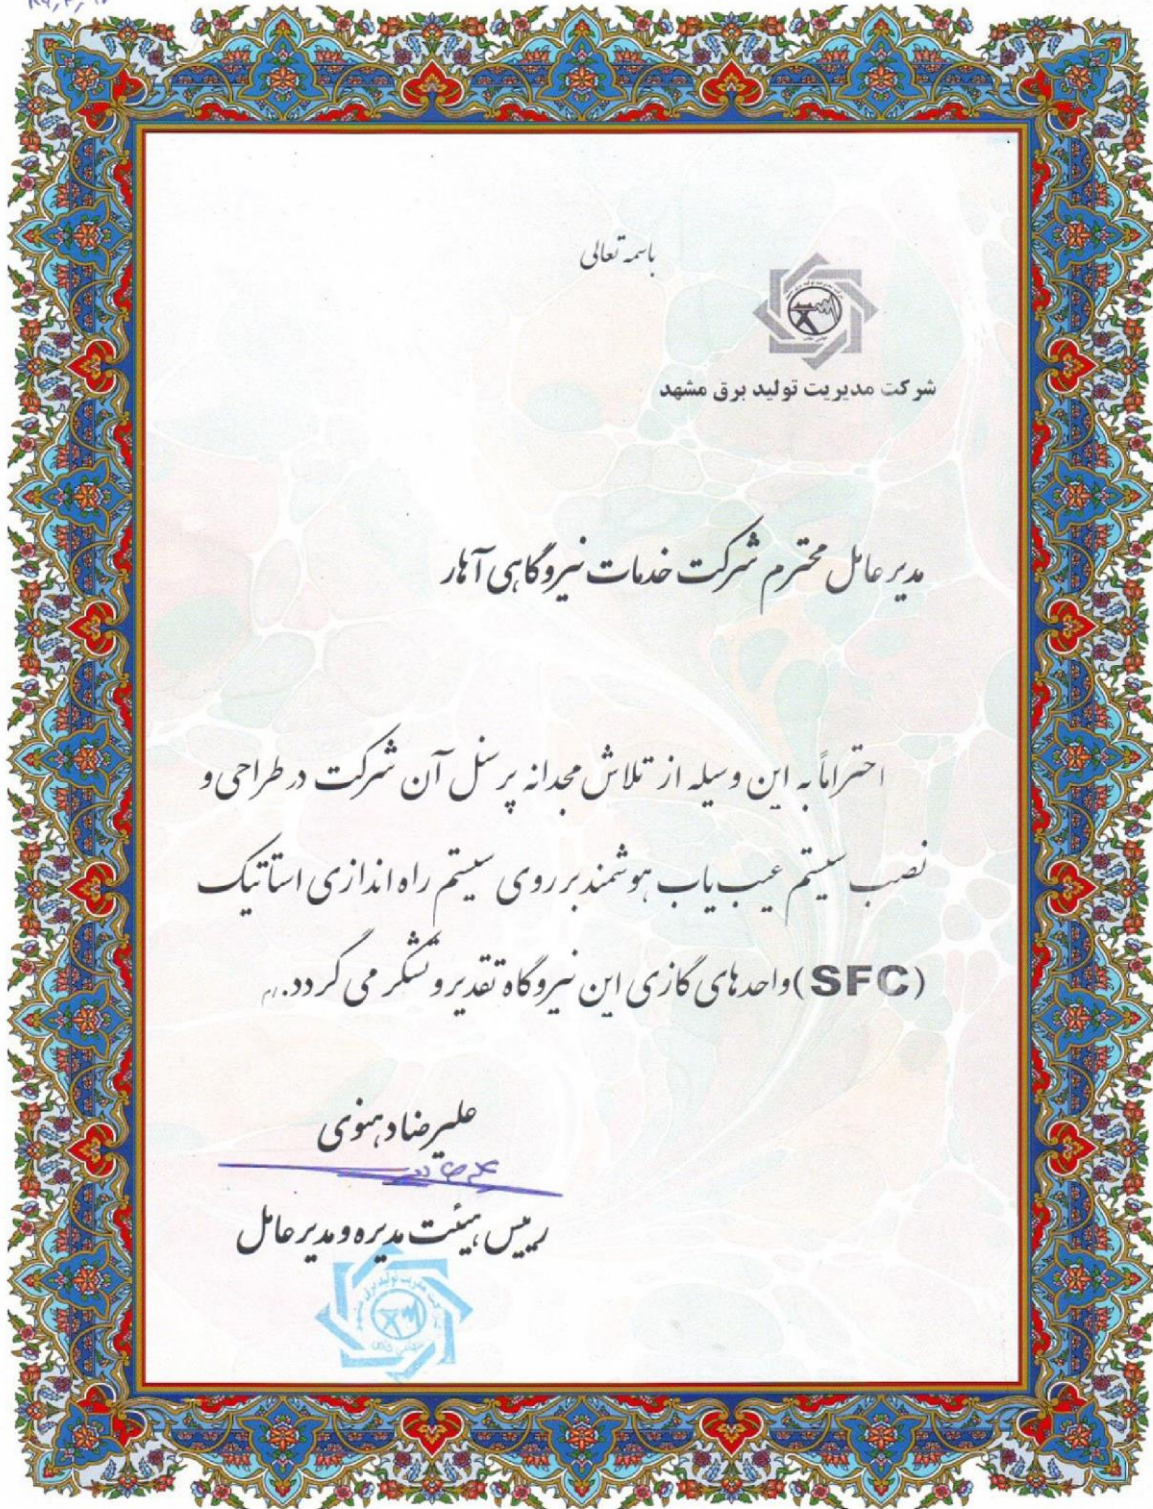 باسمه تعالی
شرکت مدیریت تولید برق مشهد
مدیر عامل محترم شرکت خدمات نیروگاهی آبار
احتراماً به این وسیله از تلاش مجدانه پرسنل آن شرکت در طراحی و
نصب سیستم عیب یاب هوشمند بر روی سیستم راه اندازی استاتیک
(SFC) واحدهای گازی این نیروگاه تقدیر و تشکر می گردد.
علیرضا دهنوی
رییس هیئت مدیره و مدیر عامل